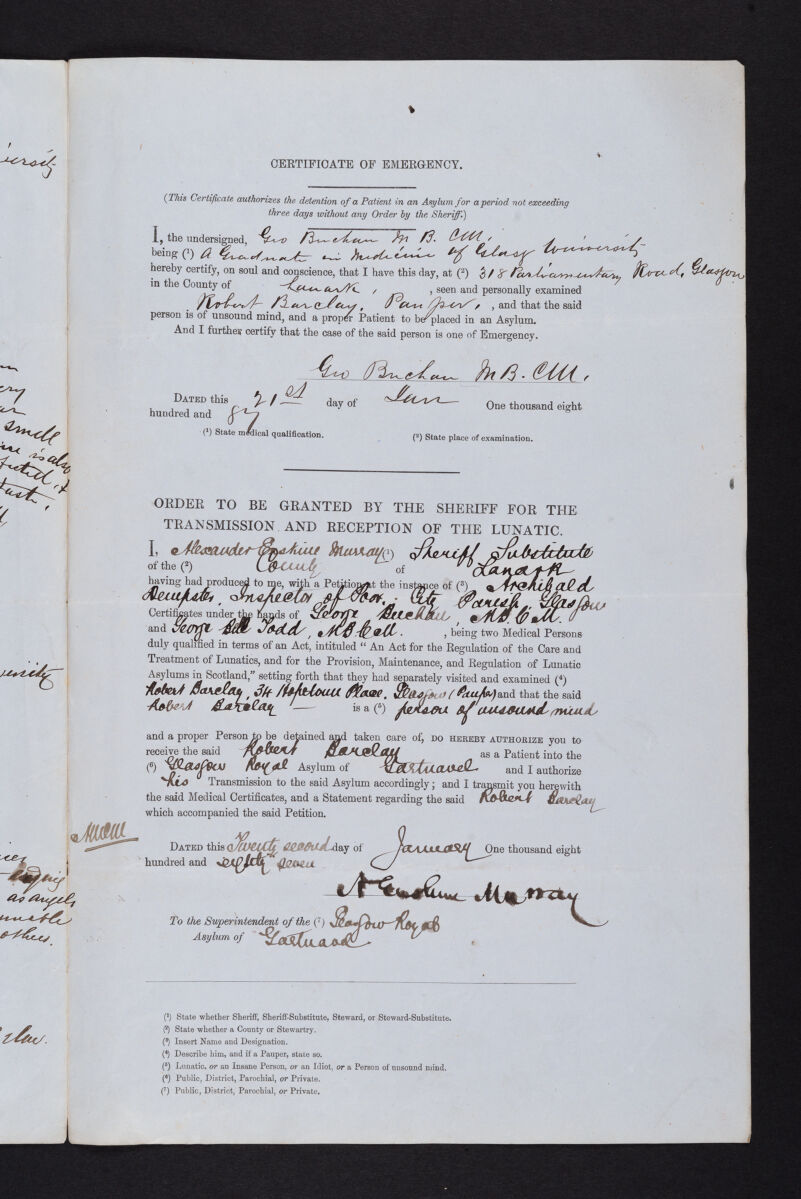 CERTIFICATE OF EMERGENCY.
(This Certificate authorizes the detention of a Patient in an Asylum for a period not exceeding
three days without any Order by the Sheriff.)
I, the undersigned, Geo Buchan M B. CM.
being (¹) A Graduate in Medicine of Glasg University
hereby certify, on soul and conscience, that I have this day, at (²) 318 Parliamentary Road, Glasgow
in the County of Lanark, , seen and personally examined
Robert Barclay, Pauper, , and that the said
person is of unsound mind, and a proper Patient to be placed in an Asylum.
And I further certify that the case of the said person is one of Emergency.
Geo Buchan MB. CM.
DATED this 21st day of Jany One thousand eight
hundred and 87
(¹) State medical qualification. (²) State place of examination.
ORDER TO BE GRANTED BY THE SHERIFF FOR THE
TRANSMISSION AND RECEPTION OF THE LUNATIC.
I, Alexander Erskine Murray (¹) Sheriff Substitute
of the (²) County of Lanark
having had produced to me, with a Petition at the instance of (³) Archibald
Dempster, Inspector of Poor, City Parish, Glasgow
Certificates under the hands of George Buchan, MB CM.
and George Bell Todd, MB CM. , being two Medical Persons
duly qualified in terms of an Act, intituled "An Act for the Regulation of the Care and
Treatment of Lunatics, and for the Provision, Maintenance, and Regulation of Lunatic
Asylums in Scotland," setting forth that they had separately visited and examined (⁴)
Robert Barclay, 34 Hopetoun Place, Glasgow (Pauper) and that the said
Robert Barclay — is a (⁵) person of unsound mind
and a proper Person to be detained and taken care of, DO HEREBY AUTHORIZE you to
receive the said Robert Barclay as a Patient into the
(⁶) Glasgow Royal Asylum of Gartnavel and I authorize
his Transmission to the said Asylum accordingly; and I transmit you herewith
the said Medical Certificates, and a Statement regarding the said Robert Barclay
which accompanied the said Petition.
DATED this Twenty second day of January One thousand eight
hundred and eighty seven
A Erskine Murray
To the Superintendent of the (⁷) Glasgow Royal
Asylum of Gartnavel
(¹) State whether Sheriff, Sheriff-Substitute, Steward, or Steward-Substitute.
(²) State whether a County or Stewartry.
(³) Insert Name and Designation.
(⁴) Describe him, and if a Pauper, state so.
(⁵) Lunatic, or an Insane Person, or an Idiot, or a Person of unsound mind.
(⁶) Public, District, Parochial, or Private.
(⁷) Public, District, Parochial, or Private.
smell
is also
as angels
others.